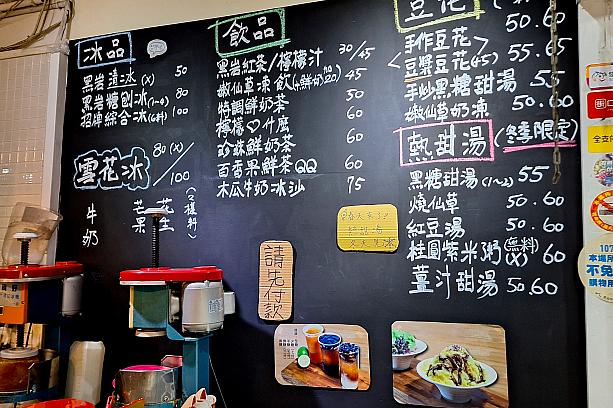 冰品
黑岩清冰(x) 50
黑岩糖刨冰(1~4) 80
招牌綜合冰(6料) 100
雪花冰 80(x)/100
(2種料)
牛奶
芒果
花生
飲品
黑岩紅茶/檸檬汁 30/45
嫩仙草凍飲 45
特調鮮奶茶 50
檸檬♡什麼 60
珍妹鮮奶茶 60
百香果鮮茶QQ 60
木瓜牛奶冰沙 75
請先付款
豆花 50.60
手作豆花 55.65
<豆漿豆花(45)>
手炒黑糖甜湯 55
嫩仙草奶凍 50.60
熱甜湯 (冬季限定)
黑糖甜湯(1~2) 55
燒仙草 50.60
紅豆湯 50.60
桂圓紫米粥(無料)(x) 60
薑汁甜湯 50.60
街口